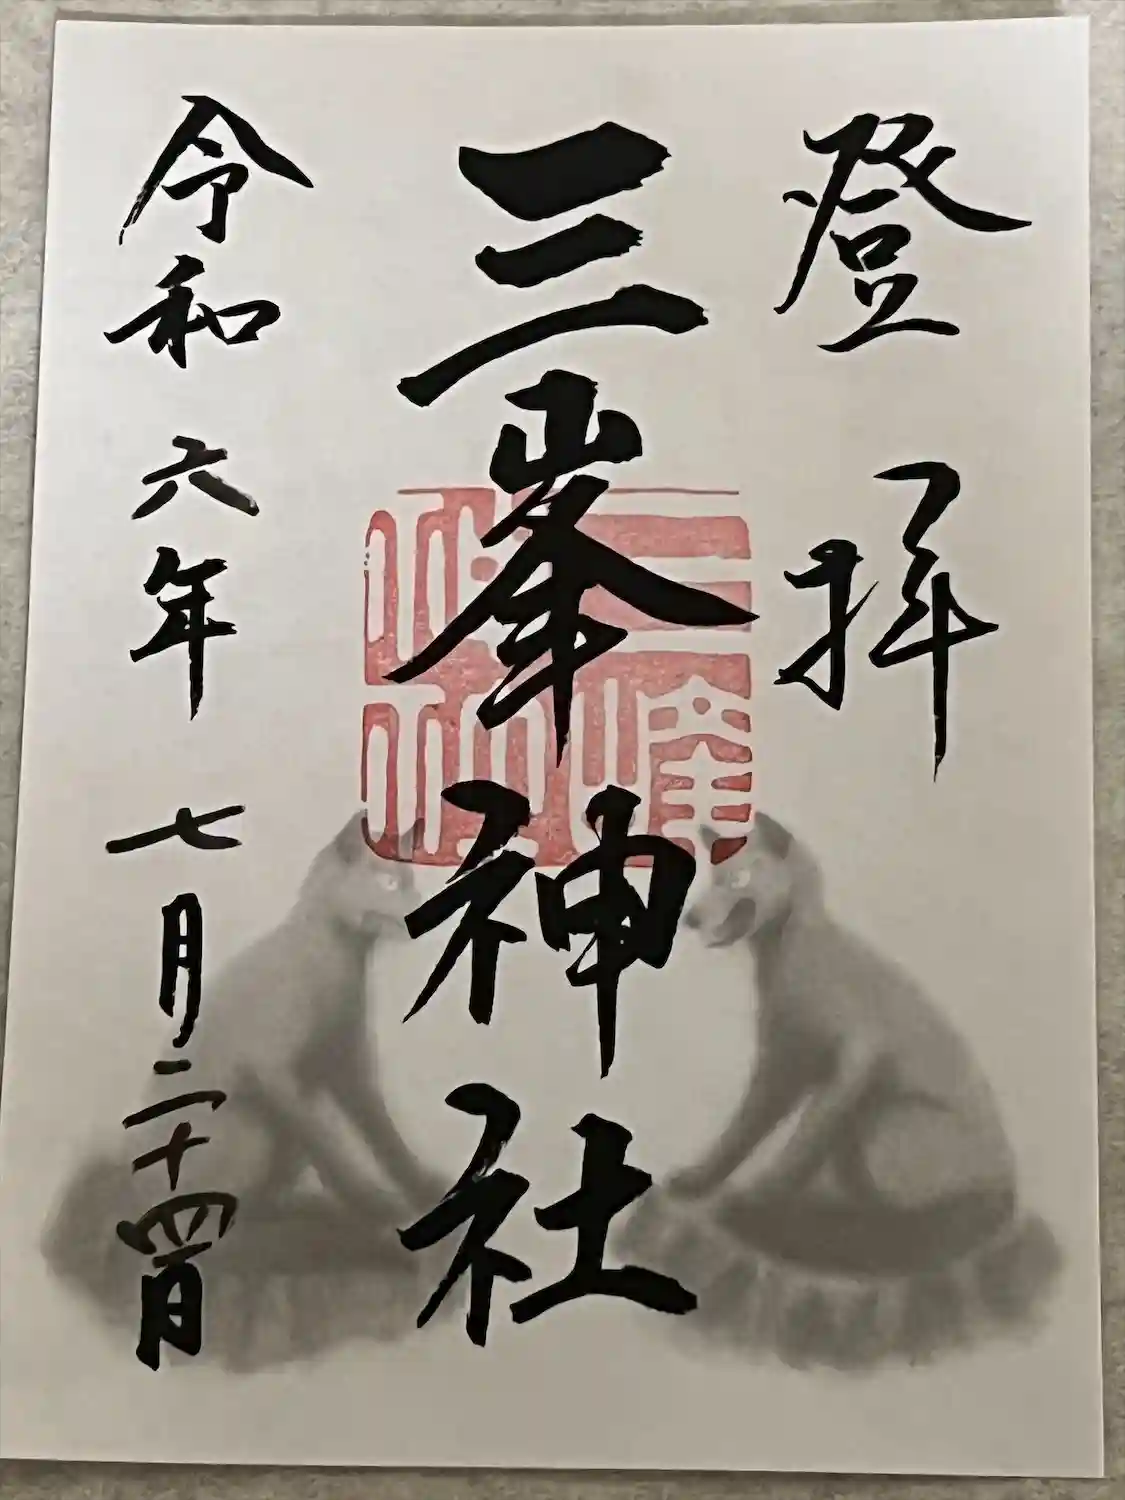 登拝
三峯神社
令和六年七月二十四日